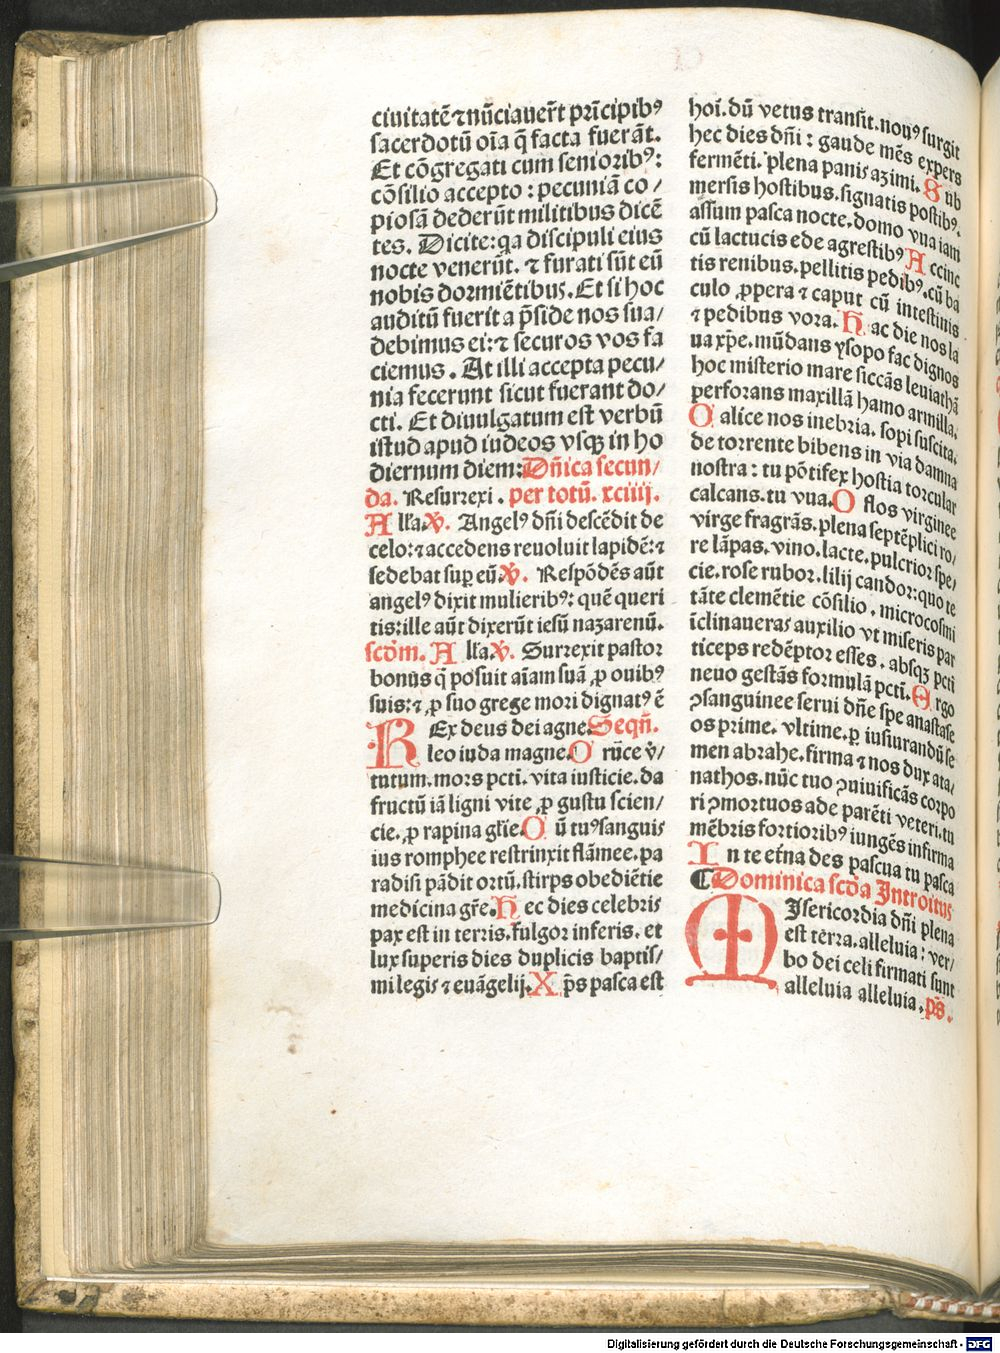 ciuitatē ⁊ nūciauer̄t prīcipibꝰ
sacerdotū oīa q̄ facta fuerāt.
Et cōgregati cum senioribꝰ:
cōsilio accepto : pecuniā co /
piosā dederūt militibus dicē
tes. Dicite: qa discipuli eius
nocte venerūt. ⁊ furati sūt eū
nobis dormiētibus. Et si hoc
auditū fuerit a p̄side nos sua/
debimus ei: ⁊ securos vos fa
ciemus . At illi accepta pecu/
nia fecerunt sicut fuerant do/
cti. Et diuulgatum est verbū
istud apud iudeos vsqꝫ in ho
diernum diem: Dn̄ica secun/
da. Resurrexi . per totū. xciiij.
All'a. V̕. Angelꝰ dn̄i descēdit de
celo: ⁊ accedens reuoluit lapidē: ⁊
sedebat suꝑ eū. V̕. Respōdēs aūt
angelꝰ dixit mulieribꝰ: quē queri
tis: ille aūt dixerūt iesū nazarenū.
scd̄m. All'a. V̕. Surrexit pastor
bonus q̄ posuit aīam suā ꝓ ouibꝰ
suis: ⁊ ꝓ suo grege mori dignatꝰ ē
REx deus dei agne. Seqn̄.
leo iuda magne. O rūce v̄/
tutum. mors pcti. vita iusticie. da
fructū iā ligni vite ꝓ gustu scien/
cie. ꝓ rapina gr̄ie. O ū tuꝰ sanguis
ius romphee restrinxit flāmee. pa
radisi pādit ortū. stirps obediētie
medicina gr̄e. H ec dies celebris
pax est in terris. fulgor inferis. et
lux superis dies duplicis baptis/
mi legis ⁊ euāgelij. X p̄s pasca est
hoī. dū vetus transit. nouꝰ surgit
hec dies dn̄i : gaude mēs expers
fermēti. plena panis azimi. S ub
mersis hostibus. signatis postibꝰ.
assum pasca nocte. domo vna iam
cū lactucis ede agrestibꝰ A ccinc
tis renibus. pellitis pedibꝰ. cū ba
culo ꝓpera ⁊ caput cū intestinis
⁊ pedibus vora. H ac die nos la
ua xp̄e. mūdans ysopo fac dignos
hoc misterio mare siccās leuiathā
perforans maxillā hamo armilla.
O alice nos inebria. sopi suscita.
de torrente bibens in via damna
nostra : tu pōtifex hostia torcular
calcans. tu vua. O flos virginee
virge fragrās. plena septēplici ro/
re lāpas. vino. lacte. pulcrior spe/
cie. rose rubor. lilij candor: quo te
tāte clemētie cōsilio . microcosmi
īclinaueras auxilio vt miseris par
ticeps redēptor esses . absqꝫ pcti
neuo gestās formulā pcti. E rgo
ꝯsanguinee serui dn̄e spe anastase
os prime. vltime. ꝑ iusiurandū se
men abrahe. firma ⁊ nos dux ata/
nathos. nūc tuo ꝯuiuificās corpo
ri ꝯmortuos ade parēti veteri. tu
mēbris fortioribꝰ iungēs infirma
I n te et̄na des pascua tu pasca
Dominica scd̄a Introitus
MIsericordia dn̄i plena
est terra. alleluia : ver/
bo dei celi firmati sunt
alleluia alleluia. ps̄.
Digitalisierung gefördert durch die Deutsche Forschungsgemeinschaft - DFG